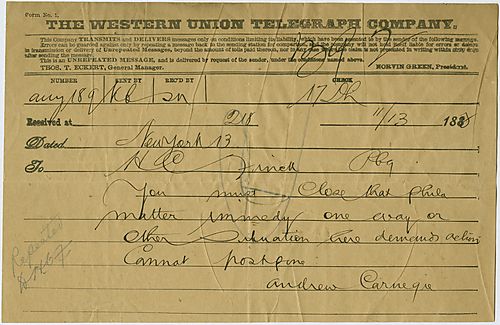 Form No. 1.
THE WESTERN UNION TELEGRAPH COMPANY.
This Company TRANSMITS and DELIVERS messages only on conditions limiting its liability, which have been assented to by the sender of the following message.
Errors can be guarded against only by repeating a message back to the sending station for comparison, and the company will not hold itself liable for errors or delays
in transmission or delivery of Unrepeated Messages, beyond the amount of tolls paid thereon, nor in any case where the claim is not presented in writing within sixty days
after sending the message.
This is an UNREPEATED MESSAGE, and is delivered by request of the sender, under the conditions named above.
THOS. T. ECKERT, General Manager. NORVIN GREEN, President.
NUMBER SENT BY REC'D BY CHECK
189 Kb 17 Dh
Received at 218 11/13 188
Dated New York 13
To H C Frick Pbg
You must close that phila
matter immedy one way or
other Situation here demands action
Cannot postpone
Andrew Carnegie
Repeated